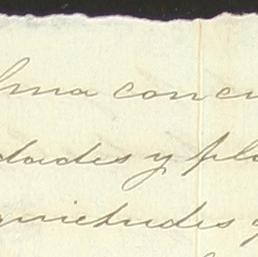 lma con cu
dades y pla
quietudes y